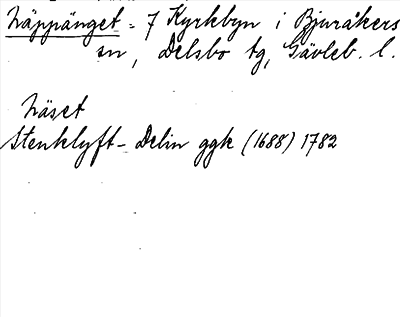 Näppänget = 7 Kyrkbyn i Bjuråkers
sn, Delsbo tg, Gävleb. l.
Näset
Stenklyft - Delin ggk (1688) 1782